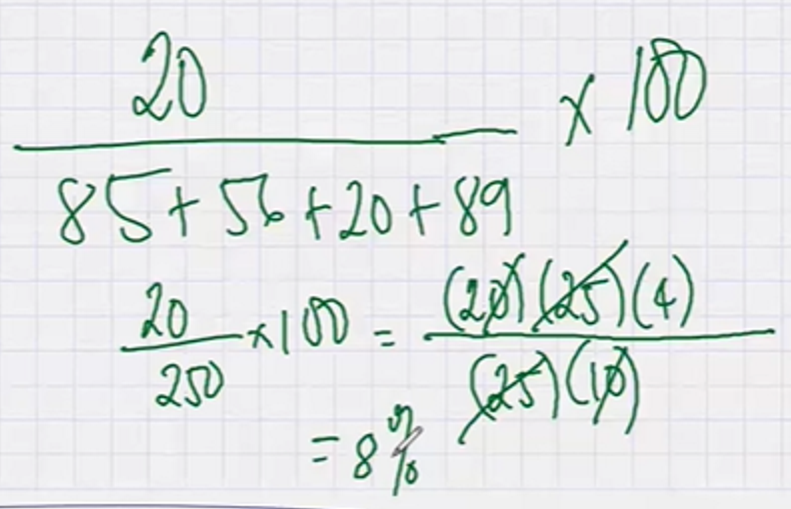 20
———— × 100
85+56+20+89
20/250 ×100 = (20)(25)(4)/(25)(10)
= 8%